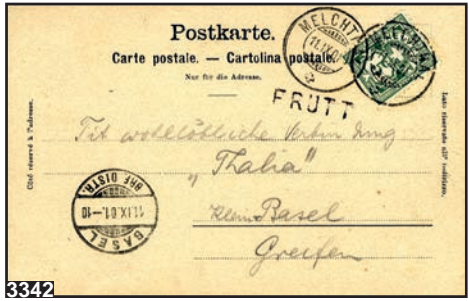 Postkarte.
Carte postale. — Cartolina postale.
Nur für die Adresse.
MELCHTAL
11.IX.01
MELCHTAL
FRUTT
Côté réservé à l'adresse.
Lato riservato all' indirizzo.
Tit wohllöbliche Verbindung
"Thalia"
Klein-Basel
Greifen
BASEL
11.IX.01.-10
BRF. DISTR.
3342